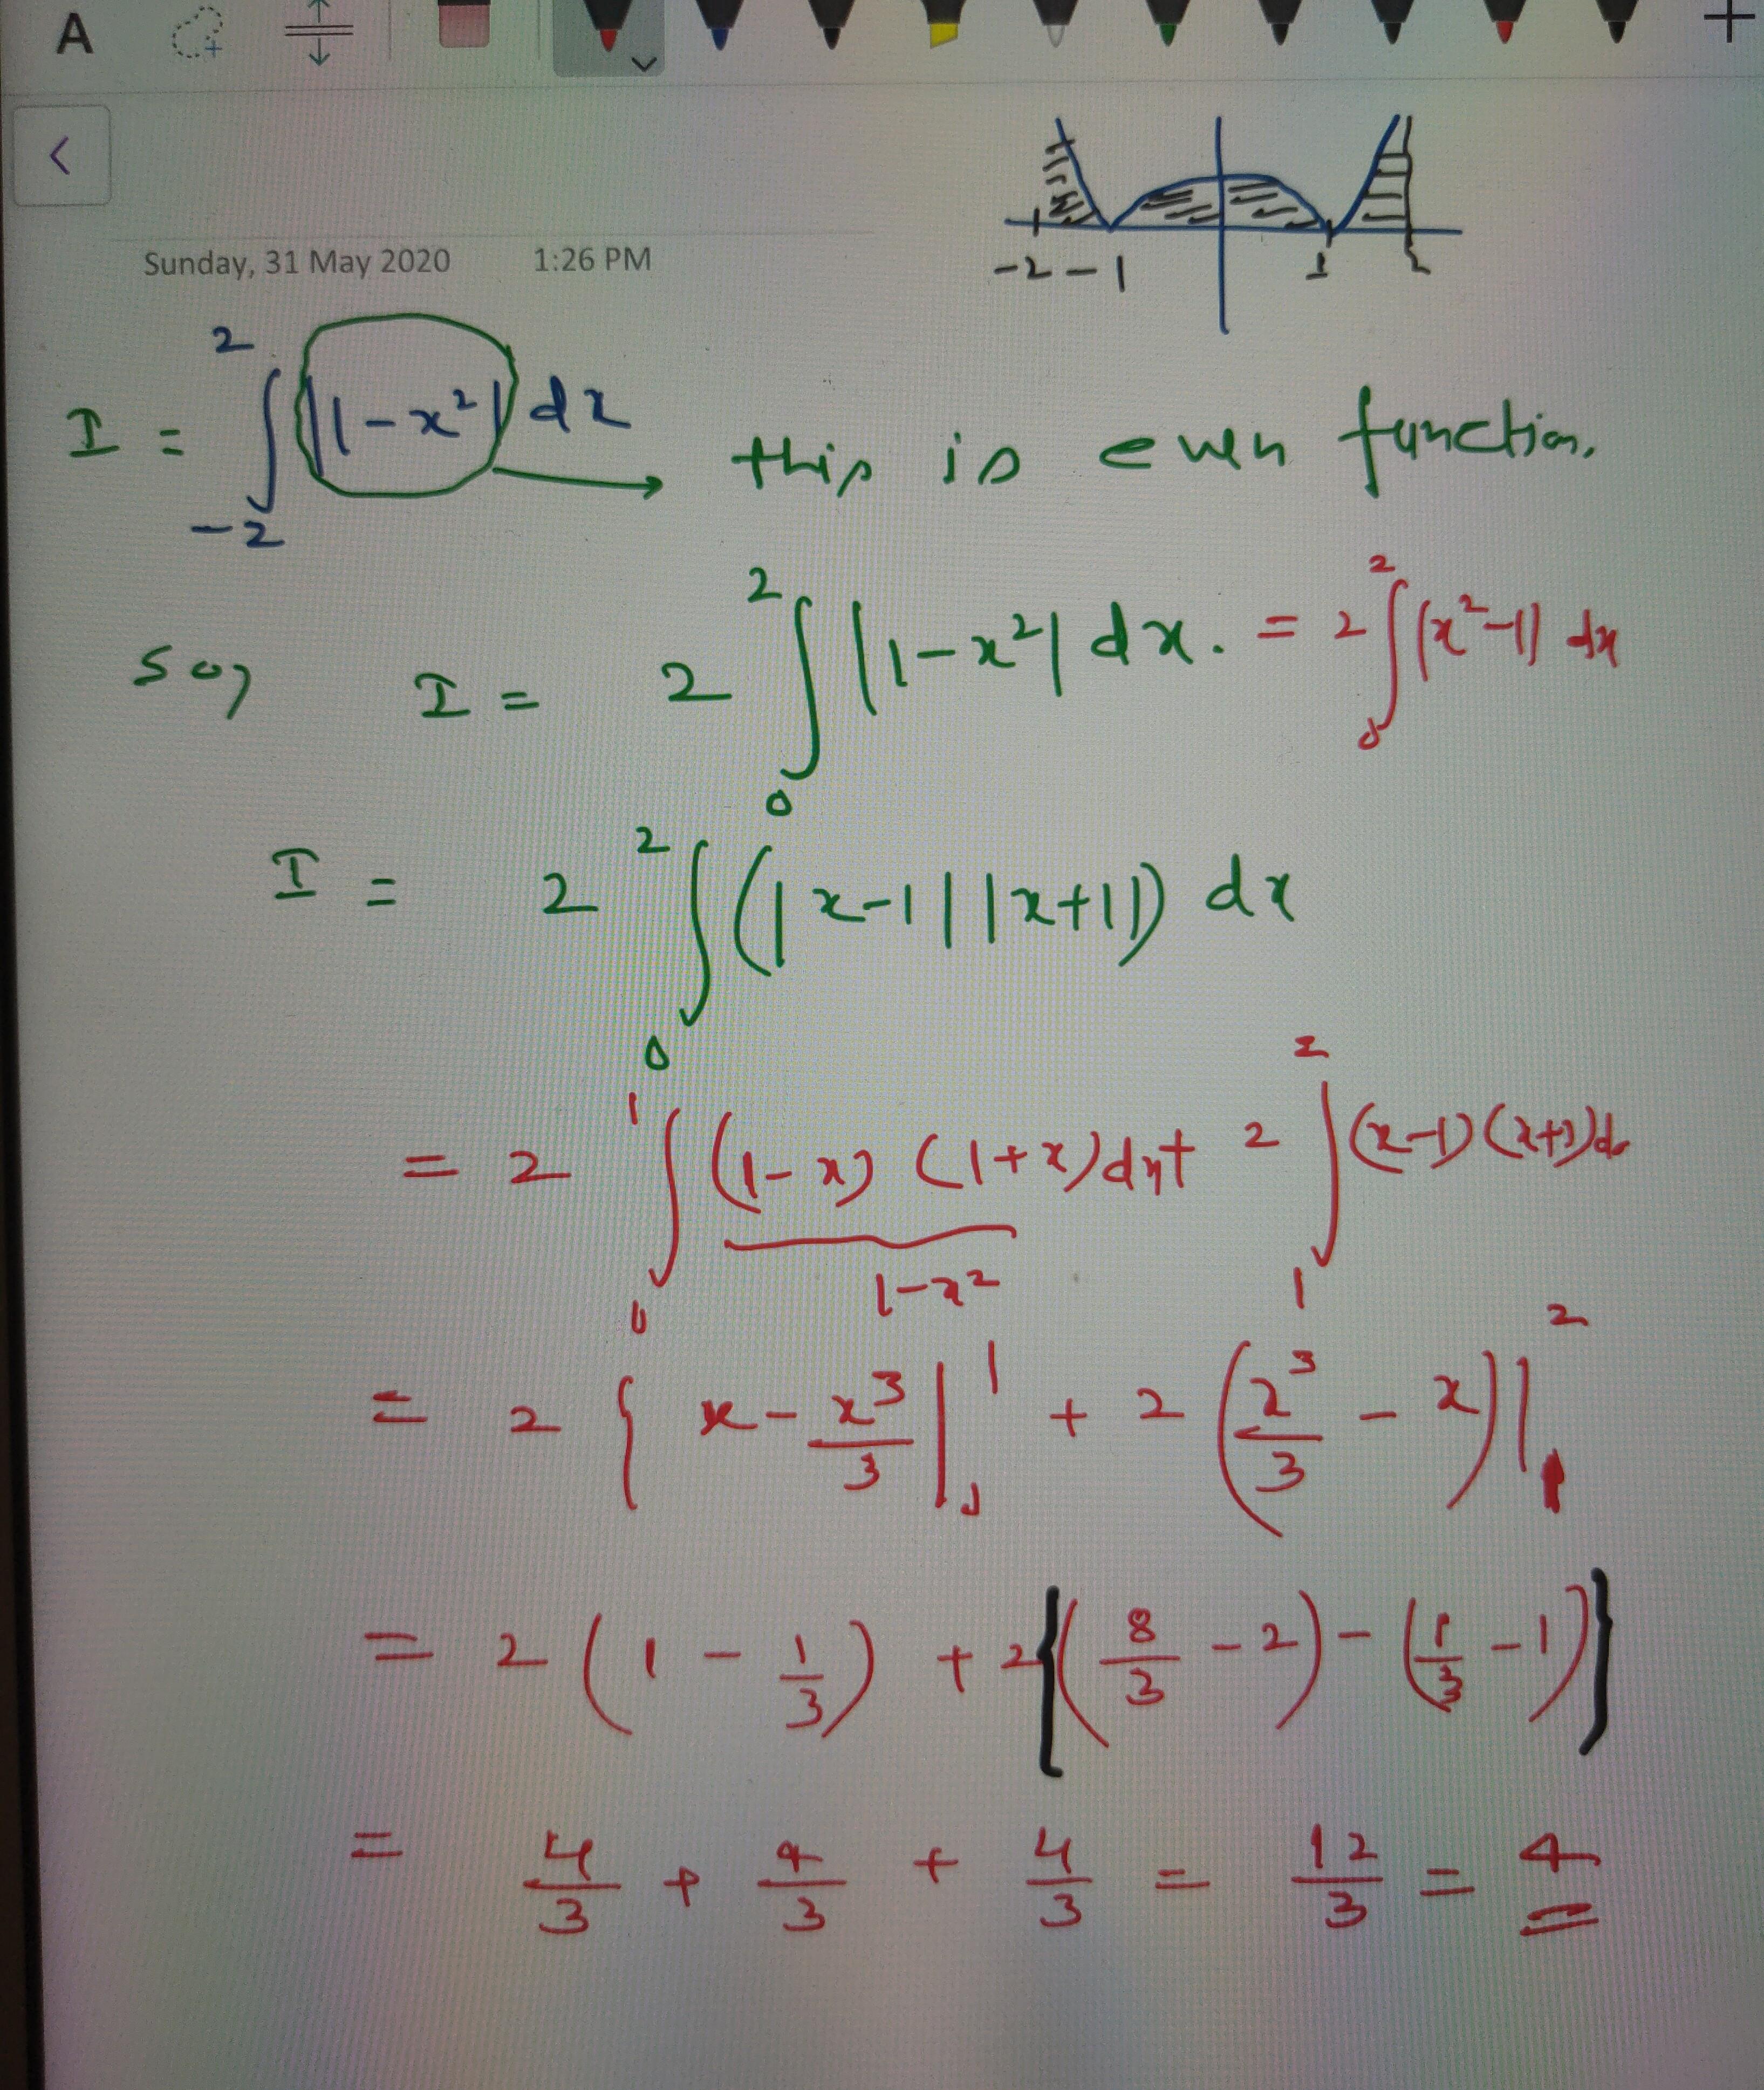 A
<
-2 -1 1 2
Sunday, 31 May 2020 1:26 PM
I = ∫_{-2}^{2} |1-x²| dx → this is even function.
So, I = 2 ∫_{0}^{2} |1-x²| dx. = 2 ∫_{0}^{2} |x²-1| dx
I = 2 ∫_{0}^{2} (|x-1| |x+1|) dx
= 2 ∫_{0}^{1} (1-x) (1+x) dx + 2 ∫_{1}^{2} (x-1) (x+1) dx
1-x²
= 2 { x - x³/3 |_{0}^{1} + 2 (x³/3 - x) |_{1}^{2}
= 2 (1 - 1/3) + 2 {(8/3 - 2) - (1/3 - 1)}
= 4/3 + 4/3 + 4/3 = 12/3 = 4